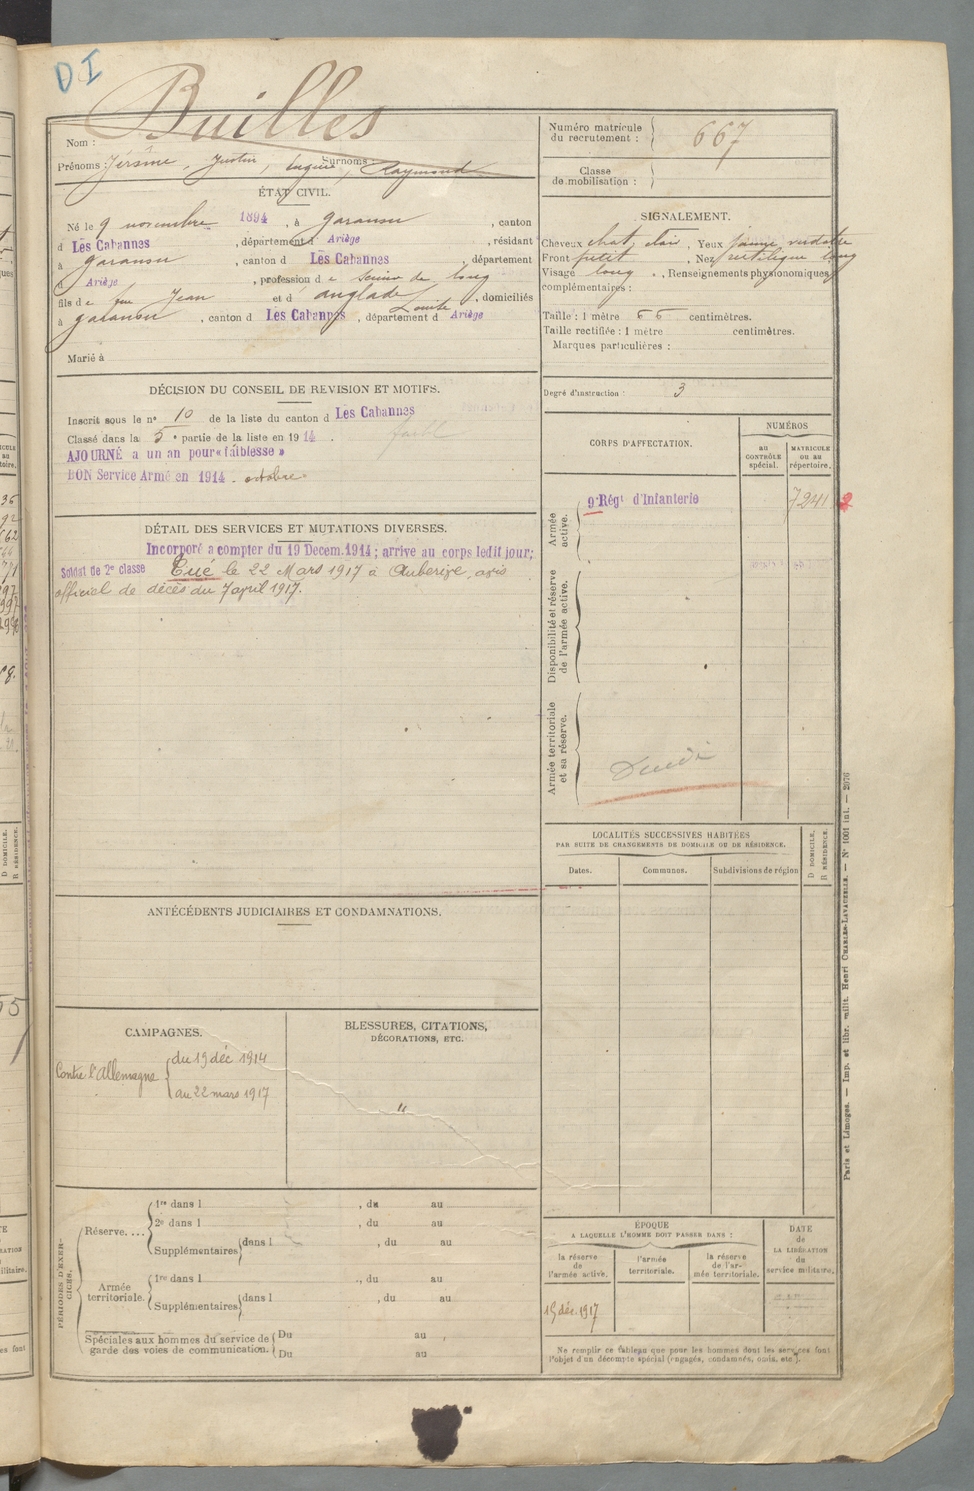 DI
Builles
Nom :
Prénoms : Jérôme, Justin, Eugène, Surnoms : Raymond
ÉTAT CIVIL.
Né le 9 novembre 1894, à Garanou, canton
d Les Cabannes, département d Ariège, résidant
à Garanou, canton d Les Cabannes, département
d Ariège, profession d e scieur de long
fils de feu Jean et d Anglade Louise, domiciliés
à Garanou, canton d Les Cabannes, département d Ariège
Marié à
DÉCISION DU CONSEIL DE REVISION ET MOTIFS.
Inscrit sous le n° 10 de la liste du canton d Les Cabannes
Classé dans la 5e partie de la liste en 1914.
AJOURNÉ a un an pour « faiblesse »
BON Service Armé en 1914 - octobre
DÉTAIL DES SERVICES ET MUTATIONS DIVERSES.
Incorporé a compter du 19 Decem.1914 ; arrive au corps ledit jour;
Soldat de 2e classe Tué le 22 Mars 1917 à Auberive, avis
officiel de décès du 7 april 1917.
ANTÉCÉDENTS JUDICIAIRES ET CONDAMNATIONS.
CAMPAGNES.
Contre l'Allemagne { du 19 déc 1914
au 22 mars 1917
BLESSURES, CITATIONS,
DÉCORATIONS, ETC.
"
PÉRIODES D'EXERCICES.
Réserve.... 1re dans l , du au
2e dans l , du au
Supplémentaires dans l , du au
Armée territoriale. 1re dans l , du au
Supplémentaires dans l , du au
Spéciales aux hommes du service de garde des voies de communication. Du au
Du au
Numéro matricule
du recrutement : 667
Classe
de mobilisation :
SIGNALEMENT.
Cheveux chat. clair, Yeux jaune verdâtre
Front petit, Nez rectiligne long
Visage long, Renseignements physionomiques
complémentaires :
Taille : 1 mètre 66 centimètres.
Taille rectifiée : 1 mètre centimètres.
Marques particulières :
Degré d'instruction : 3
CORPS D'AFFECTATION.
NUMÉROS
au CONTRÔLE spécial.
MATRICULE ou au répertoire.
Armée active.
9e Régt d'Infanterie 7241
Disponibilité et réserve de l'armée active.
Armée territoriale et sa réserve.
LOCALITÉS SUCCESSIVES HABITÉES
PAR SUITE DE CHANGEMENTS DE DOMICILE OU DE RÉSIDENCE.
Dates. Communes. Subdivisions de région
D DOMICILE.
R RÉSIDENCE.
ÉPOQUE
A LAQUELLE L'HOMME DOIT PASSER DANS :
la réserve de l'armée active.
l'armée territoriale.
la réserve de l'armée territoriale.
DATE de LA LIBÉRATION du service militaire.
19 déc. 1917
Ne remplir ce tableau que pour les hommes dont les services font
l'objet d'un décompte spécial (engagés, condamnés, omis, etc.).
Paris et Limoges. — Imp. et libr. milit. Henri CHARLES-LAVAUZELLE. — N° 1001 int. — 2976